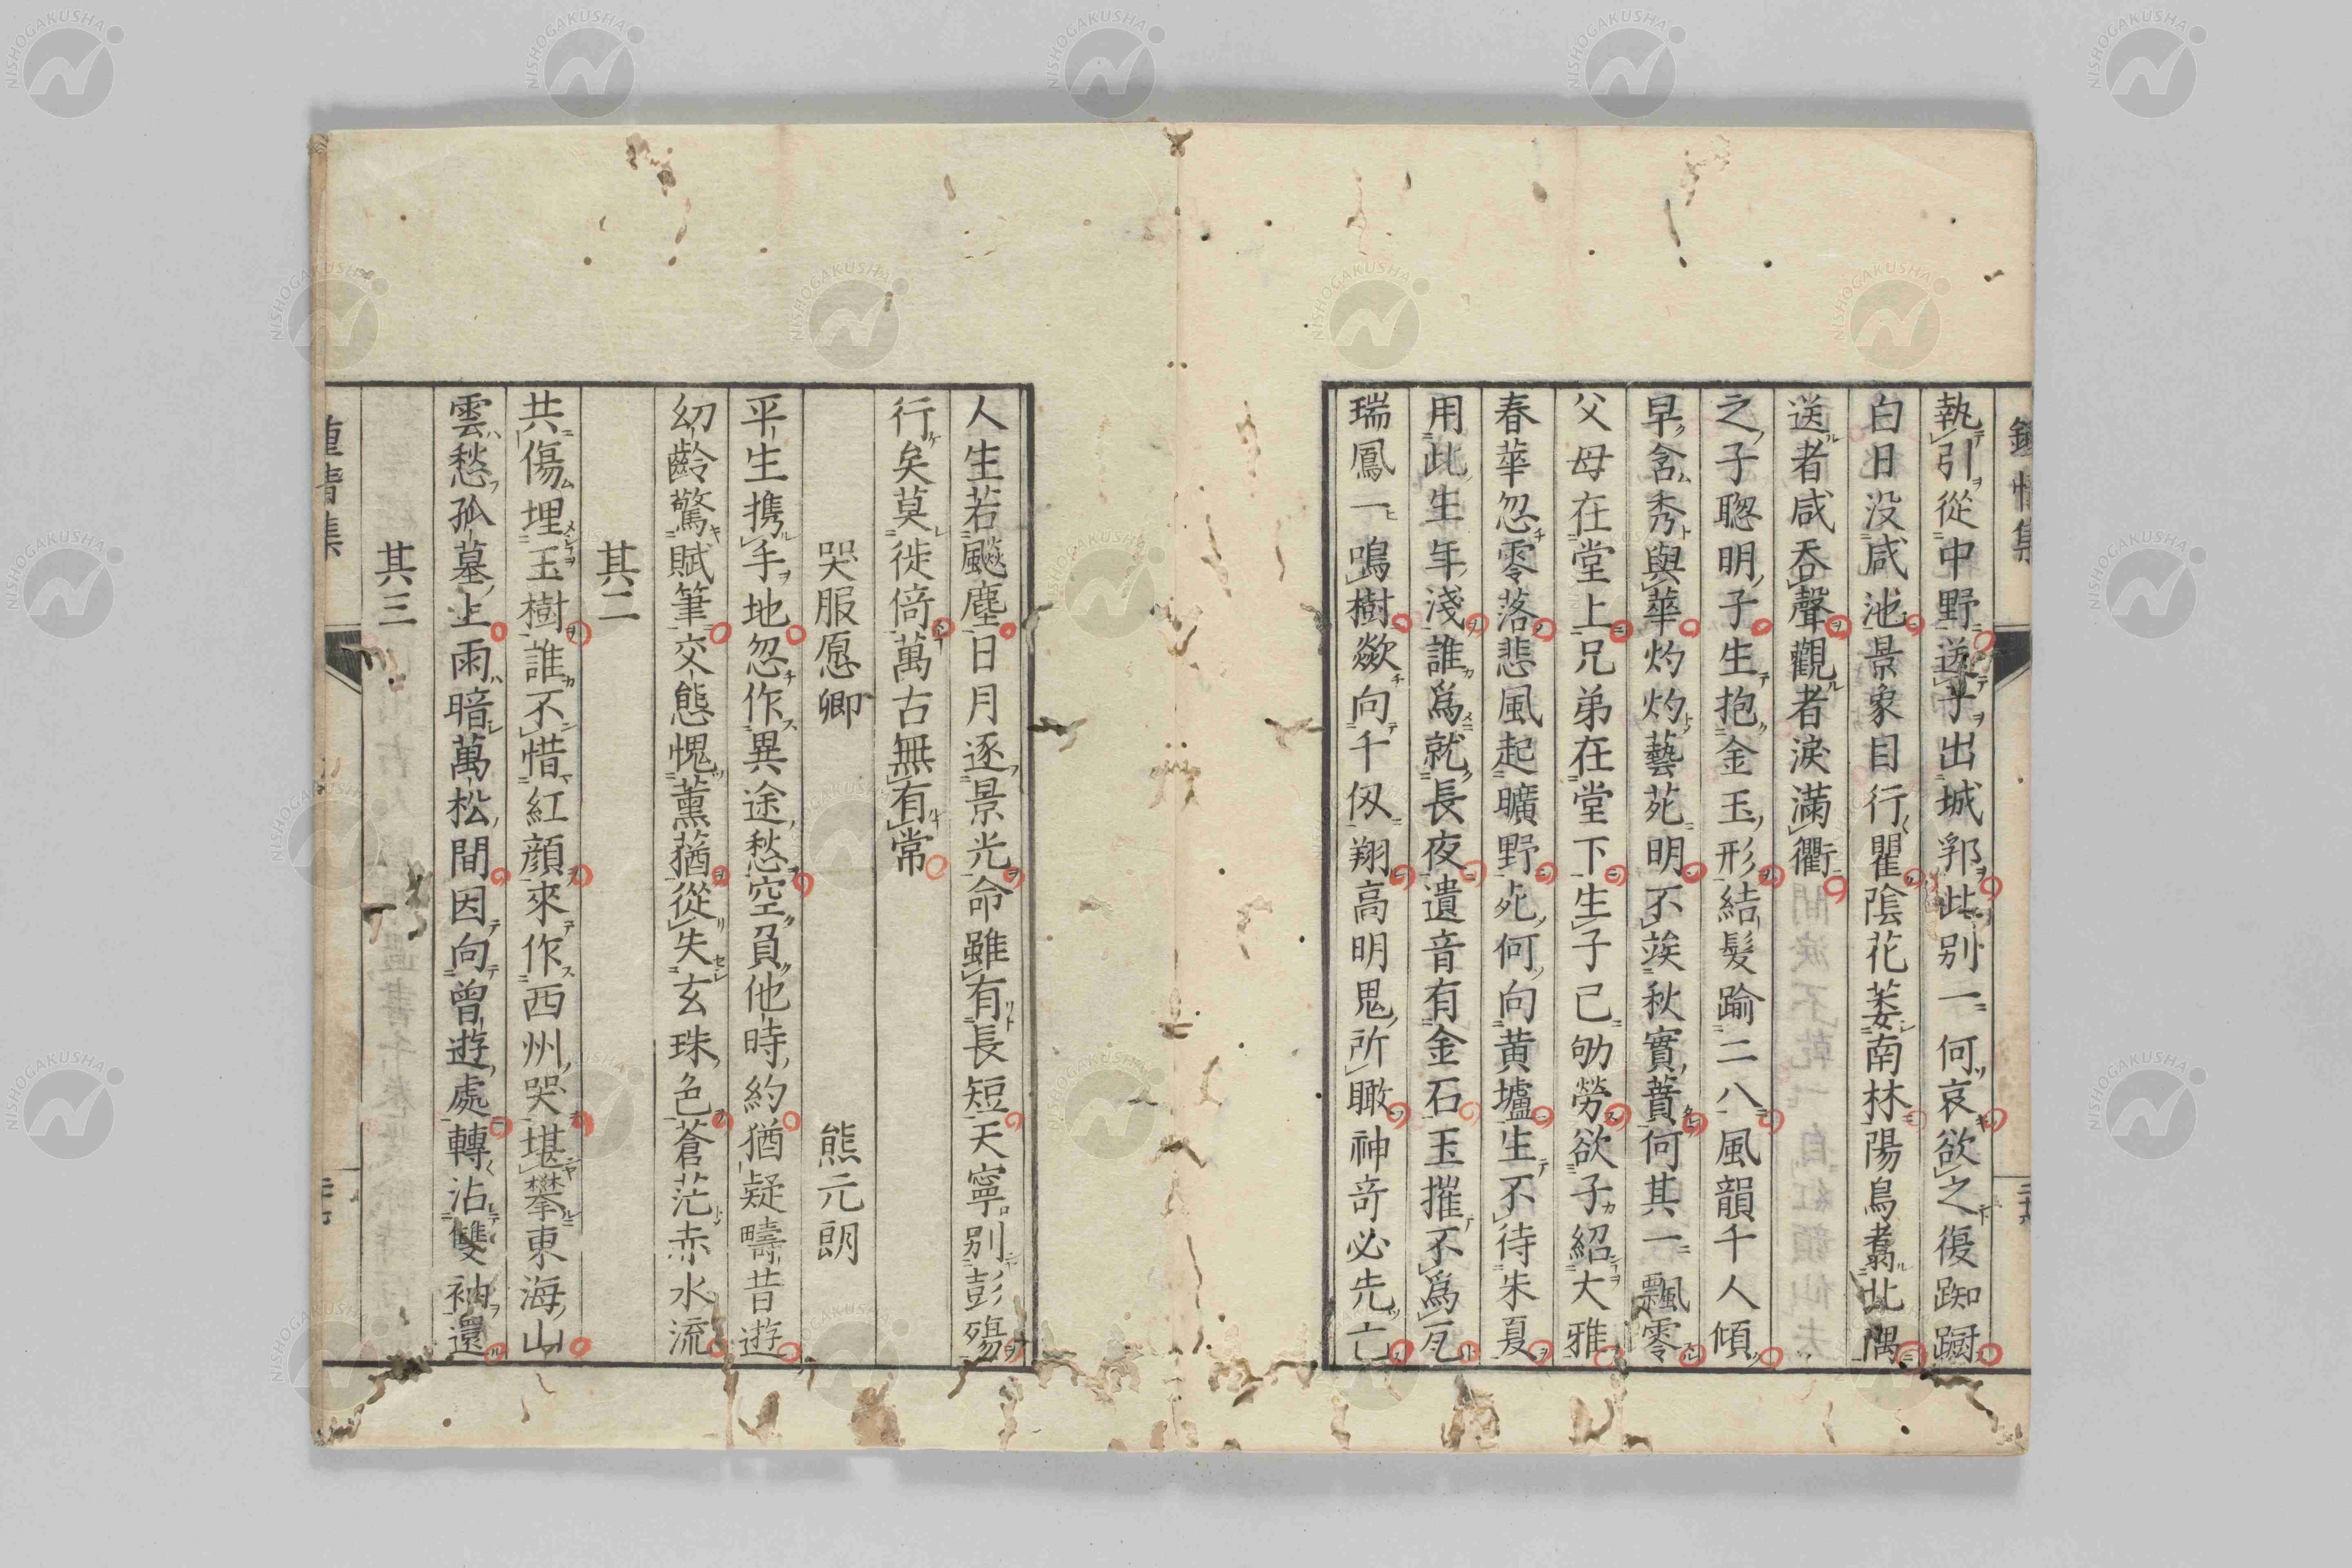 鍾情集
執引從中野送子出城郭此別一何哀欲之復踟蹰
白日没咸池景象目行瞿陰花萎南林陽鳥翥北隅
送者咸吞聲觀者淚滿衢
之子聰明子生抱金玉形結髮踰二八風韻千人傾
早含秀與華灼灼藝苑明不竢秋實蕡何其一飄零
父母在堂上兄弟在堂下生子已劬勞欲子紹大雅
春華忽零落悲風起曠野死何向黄壚生不待朱夏
用此生年淺誰爲就長夜遺音有金石玉摧不爲瓦
瑞鳳一鳴樹歘向千仭翔高明鬼所瞰神竒必先亡
人生若飈塵日月逐景光命雖有長短天寧別彭殤
行矣莫徙倚萬古無有常
哭服愿卿 熊元朗
平生携手地忽作異途愁空負他時約猶疑疇昔遊
幼齡驚賦筆交態愧薰蕕從失玄珠色蒼茫赤水流
其二
共傷埋玉樹誰不惜紅顔來作西州哭堪攀東海山
雲愁孤墓上雨暗萬松間因向曾遊處轉沾雙袖還
其三
鍾情集
NISHOGAKUSHA